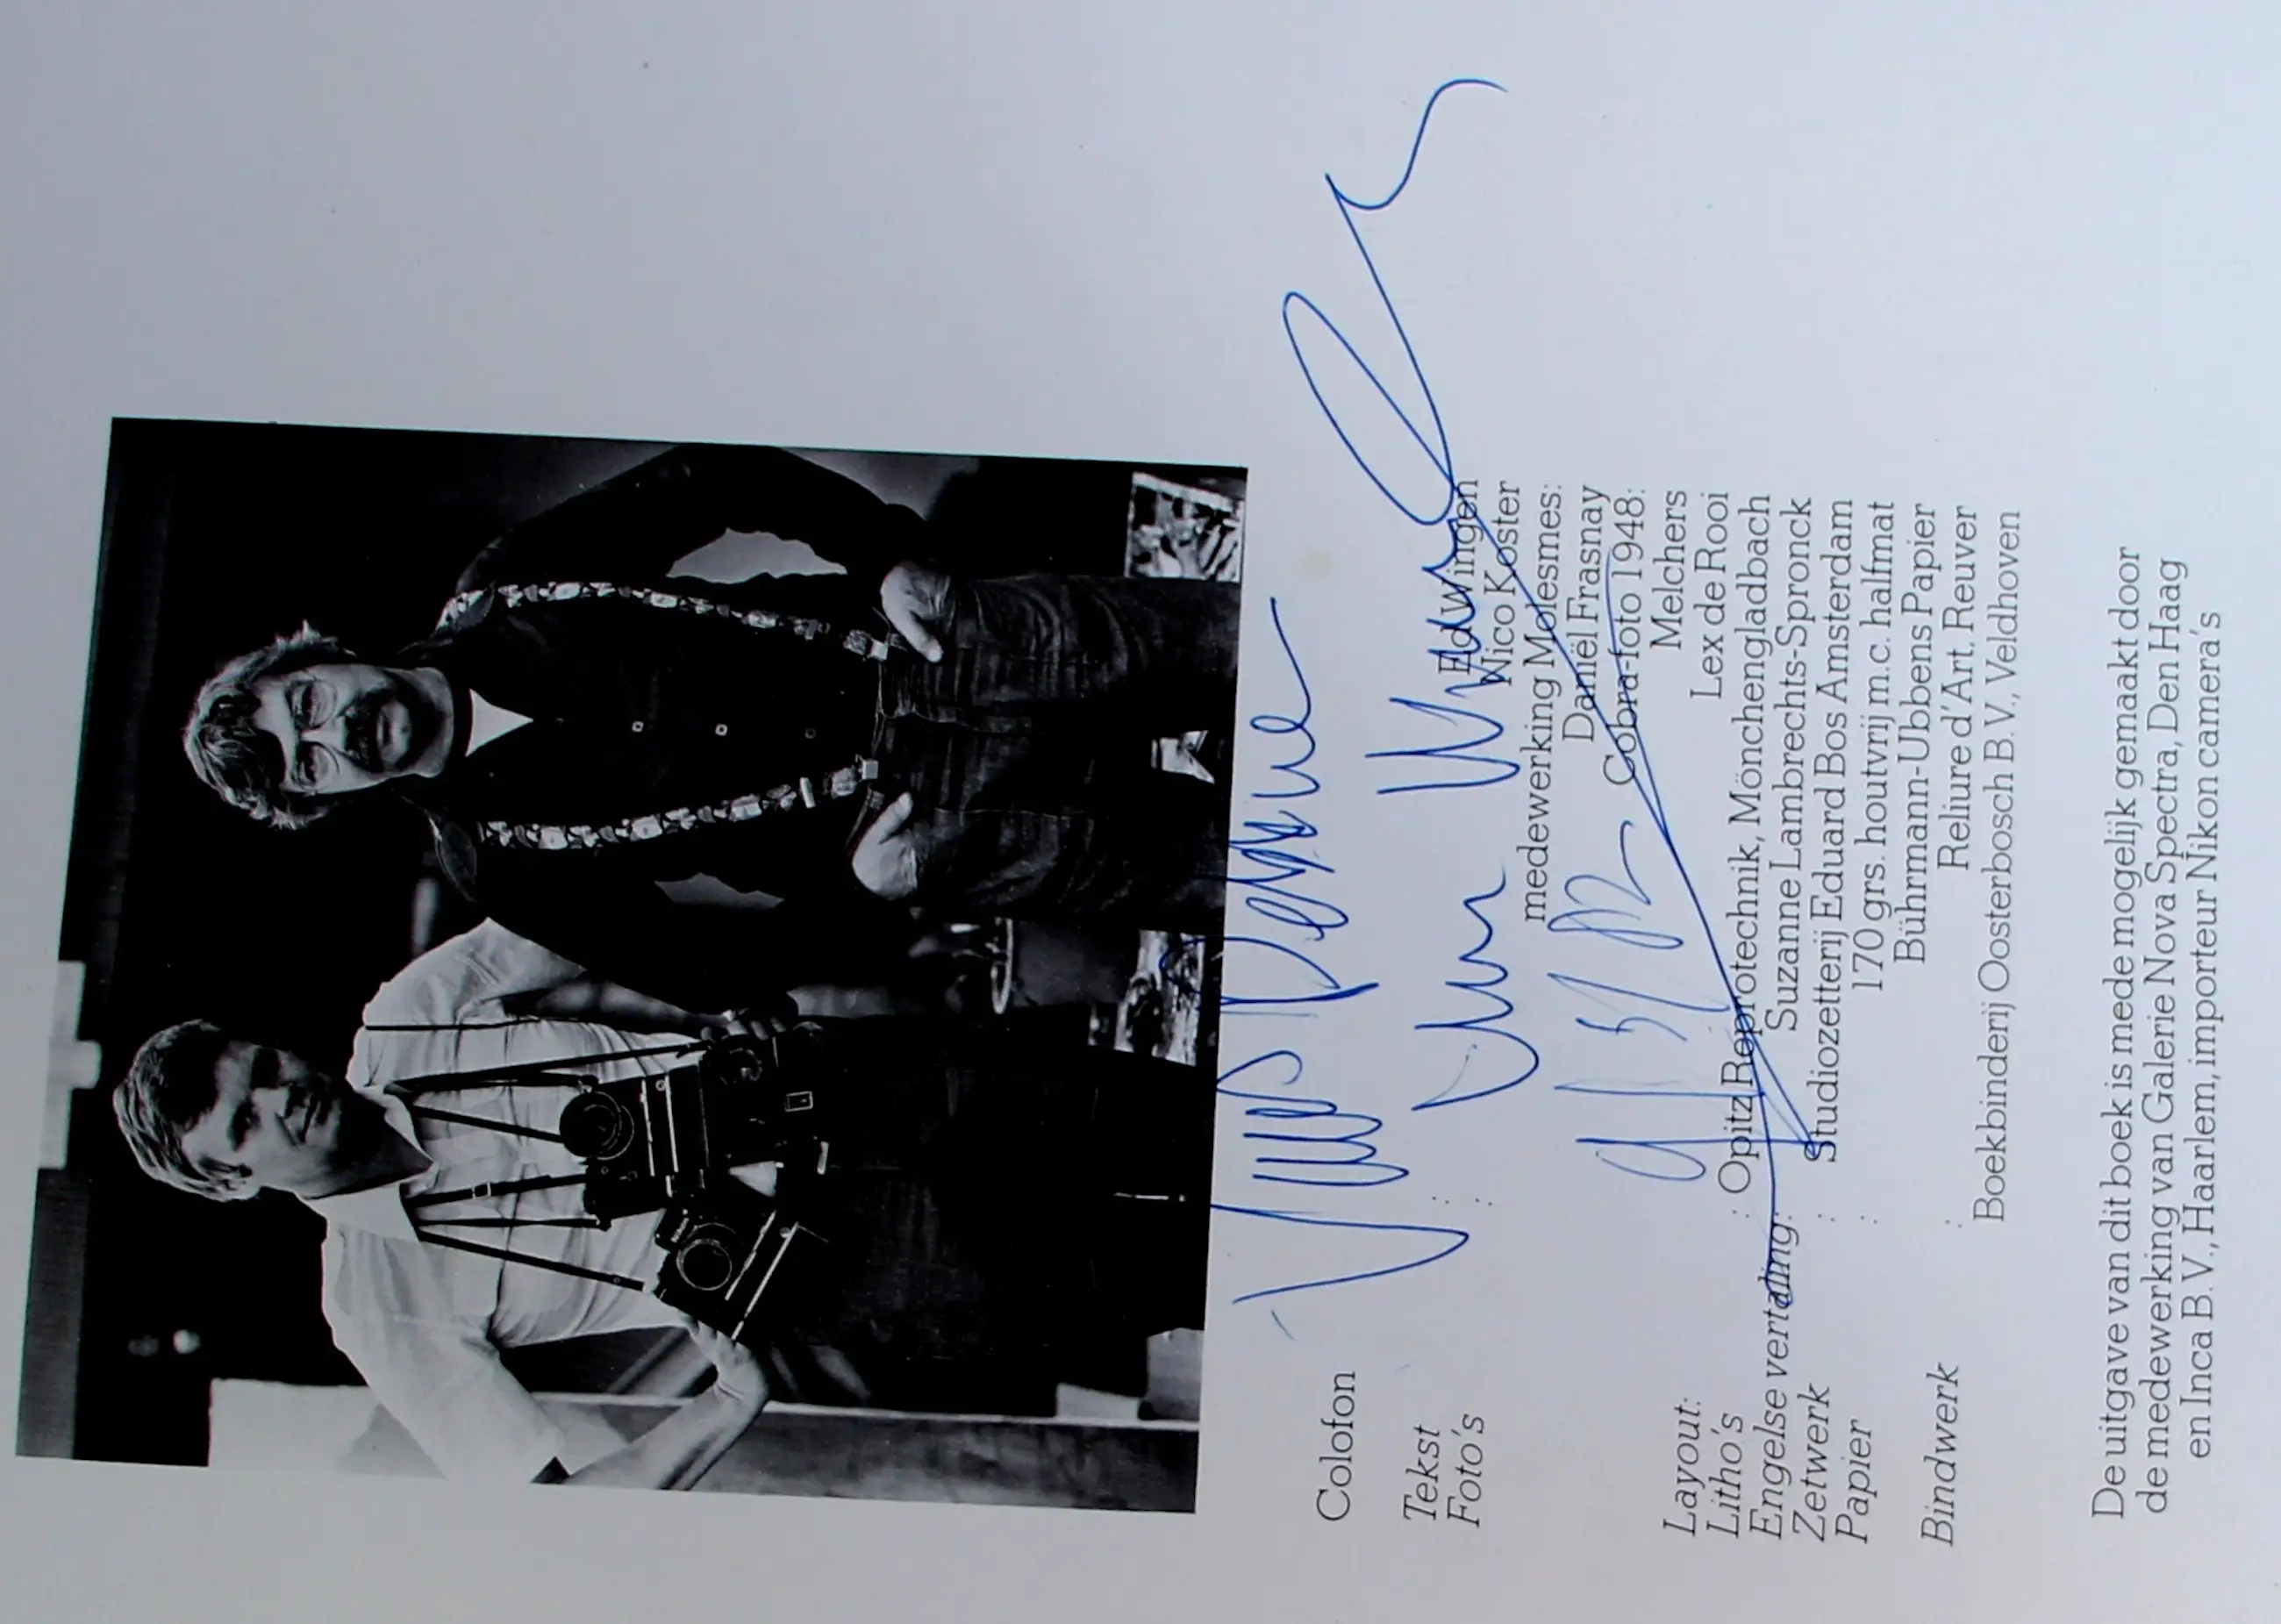 Colofon
Tekst : Ed Wingen
Foto's : Nico Koster
medewerking Molesmes:
Daniël Frasnay
Cobra-foto 1948:
Melchers
Layout: Lex de Rooi
Litho's : Opitz Reprotechnik, Mönchengladbach
Engelse vertaling: Suzanne Lambrechts-Spronck
Zetwerk : Studiozetterij Eduard Bos Amsterdam
Papier : 170 grs. houtvrij m.c. halfmat
Bührmann-Ubbens Papier
Bindwerk : Reliure d'Art, Reuver
Boekbinderij Oosterbosch B.V., Veldhoven
De uitgave van dit boek is mede mogelijk gemaakt door
de medewerking van Galerie Nova Spectra, Den Haag
en Inca B.V., Haarlem, importeur Nikon camera's